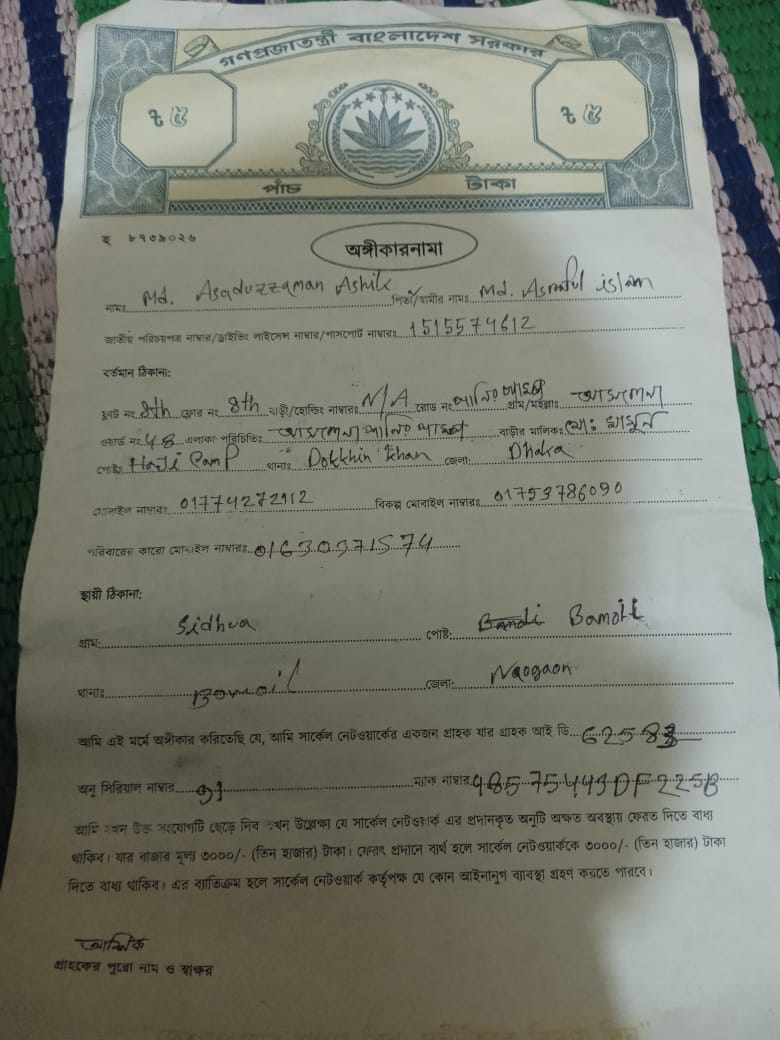 গণপ্রজাতন্ত্রী বাংলাদেশ সরকার
৳ ৫ ৳ ৫
পাঁচ টাকা
হ ৮৭৩৯০২৬
অঙ্গীকারনামা
নামঃ Md. Asaduzzaman Ashik পিতা/স্বামীর নামঃ Md. Asraful islam
জাতীয় পরিচয়পত্র নাম্বার/ড্রাইভিং লাইসেন্স নাম্বার/পাসপোর্ট নাম্বারঃ 1515574612
বর্তমান ঠিকানা:
ফ্লাট নং 8th ফ্লোর নং 8th বাড়ী/হোল্ডিং নাম্বারঃ N/A রোড নং পানির পাম্প গ্রাম/মহল্লাঃ
ওয়ার্ড নং 48 এলাকা পরিচিতিঃ পানির পাম্প বাড়ীর মালিকঃ মোঃ মামুন
পোষ্টঃ Haji Camp থানাঃ Dokkhin khan জেলা: Dhaka
মোবাইল নাম্বারঃ 01774272912 বিকল্প মোবাইল নাম্বারঃ 01753786090
পরিবারের কারো মোবাইল নাম্বারঃ 01630371574
স্থায়ী ঠিকানা:
গ্রাম: Sidhua পোষ্ট: Bamoil
থানাঃ জেলা: Naogaon
আমি এই মর্মে অঙ্গীকার করিতেছি যে, আমি সার্কেল নেটওয়ার্কের একজন গ্রাহক যার গ্রাহক আই ডি
অনু সিরিয়াল নাম্বার 91 ম্যাক নাম্বার 485754493DF225B
আমি যখন উক্ত সংযোগটি ছেড়ে দিব তখন উল্লেক্ষ্য যে সার্কেল নেটওয়ার্ক এর প্রদানকৃত অনুটি অক্ষত অবস্থায় ফেরত দিতে বাধ্য
থাকিব। যার বাজার মূল্য ৩০০০/- (তিন হাজার) টাকা। ফেরৎ প্রদানে ব্যর্থ হলে সার্কেল নেটওয়ার্ককে ৩০০০/- (তিন হাজার) টাকা
দিতে বাধ্য থাকিব। এর ব্যাতিক্রম হলে সার্কেল নেটওয়ার্ক কর্তৃপক্ষ যে কোন আইনানুগ ব্যাবস্থা গ্রহণ করতে পারবে।
আশিক
গ্রাহকের পুরো নাম ও স্বাক্ষর